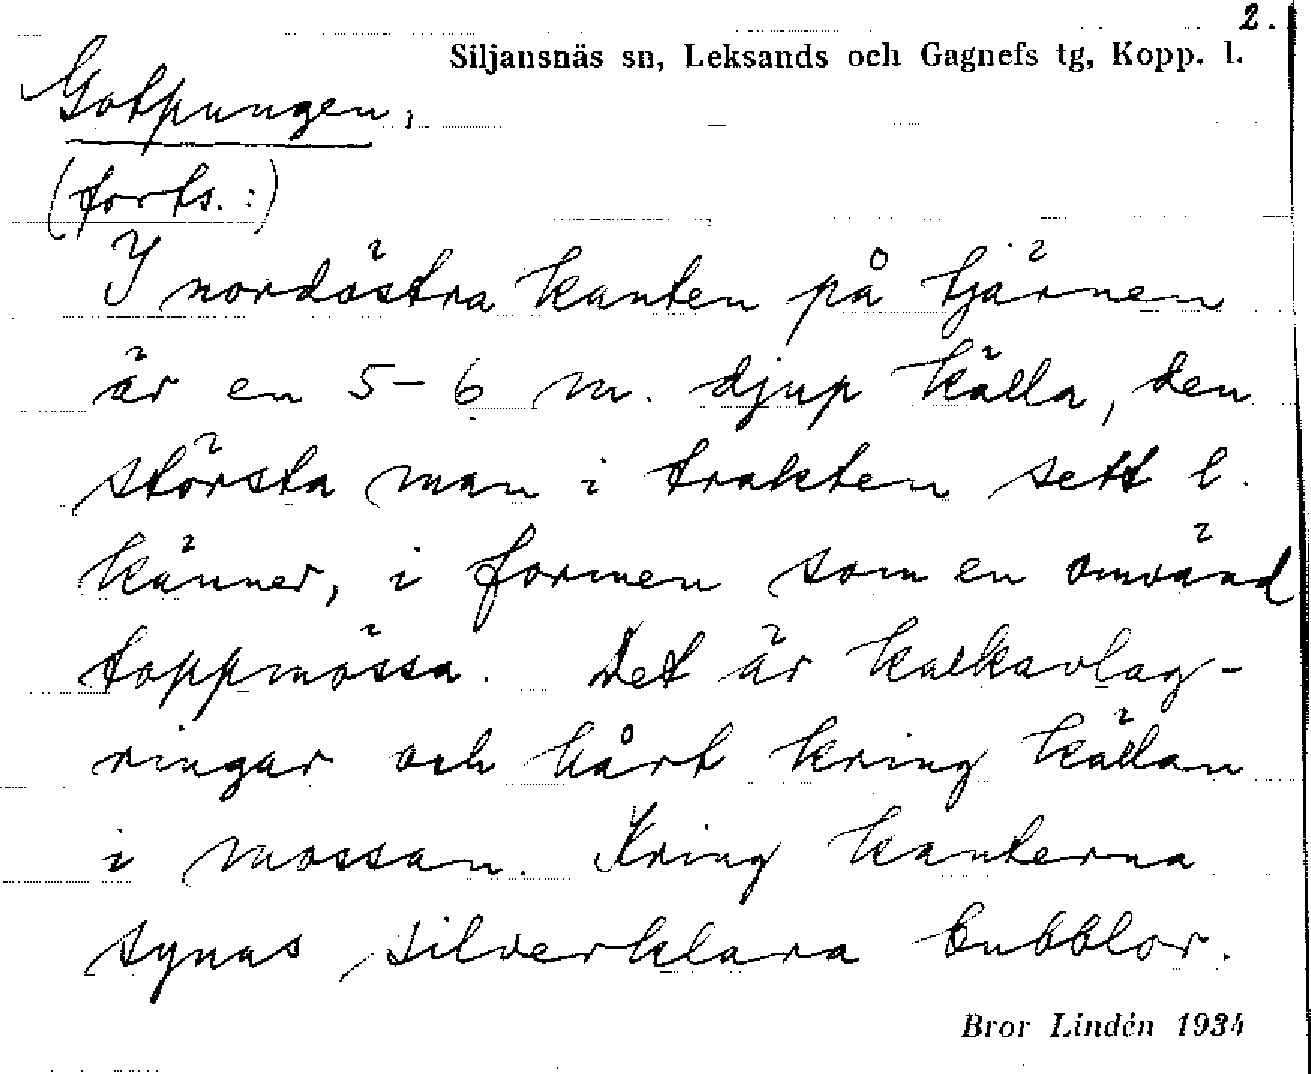 2.
Siljansnäs sn, Leksands och Gagnefs tg, Kopp. l.
Gotpungen,
(forts.:)
I nordöstra kanten på tjärnen
är en 5-6 m. djup källa, den
största man i trakten sett l.
känner, i formen som en omvänd
toppmössa. Det är kalkavlag-
ringar och hårt kring källan
i mossan. Kring kanterna
synas silverklara bubblor.
Bror Lindén 1934